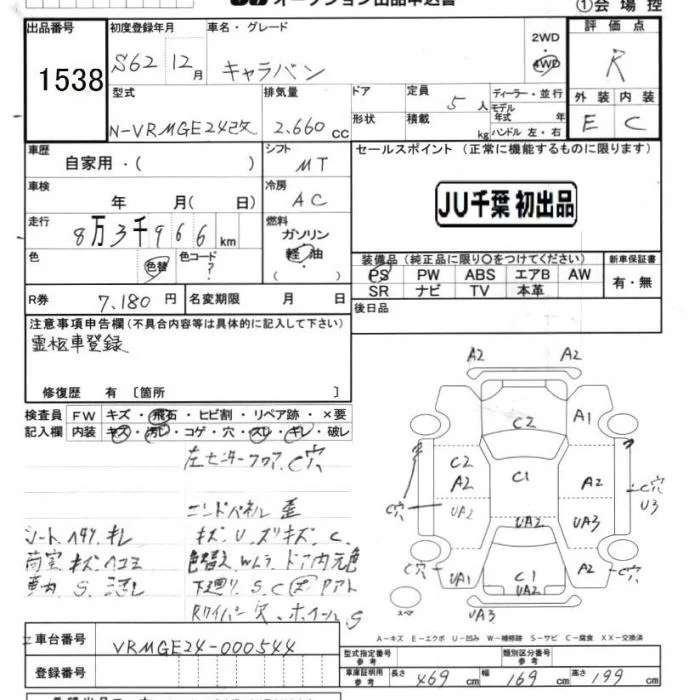 オークション出品申込書
①会場控
出品番号 1538
初度登録年月 S62 12月
車名・グレード キャラバン
2WD
4WD
評価点 R
型式 N-VRMGE24改
排気量 2.660 cc
ドア 形状
定員 5人
積載 kg
ディーラー・並行
モデル年式 年
ハンドル 左・右
外装 E
内装 C
車歴 自家用・( )
シフト MT
セールスポイント (正常に機能するものに限ります)
車検 年 月( 日)
冷房 AC
JU千葉 初出品
走行 8万3千966km
燃料 ガソリン 軽油 ( )
色 色替 色コード ?
装備品 (純正品に限り○をつけてください)
新車保証書
PS PW ABS エアB AW
有・無
SR ナビ TV 本革
R券 7,180円
名変期限 月 日
後日品
注意事項申告欄(不具合内容等は具体的に記入して下さい)
霊柩車登録
修復歴 有 〔箇所 〕
検査員 FW キズ・飛石・ヒビ割・リペア跡・×要
記入欄 内装 キズ・汚レ・コゲ・穴・スレ・キレ・破レ
左センターフロア、C穴
エンドパネル 歪
シート、ヘタリ、キレ
キズ、U、スリキズ、C、
荷室 キズ ヘコミ
色替え、Wムラ ドア内元色
車内 S、
下廻り、S、C
Rワイパー穴、ホイールS
A2 A2
C2 A1
C2 A2 C1 A2
C穴 C穴 U3
UA2 UA2 UA3
C穴 UA1 C1 UA2 A2 C穴
スペア
UA3
A-キズ E-エクボ U-凹み W-補修跡 S-サビ C-腐食 XX-交換済
車台番号 VRMGE24-000544
型式指定番号 参考
類別区分番号 参考
登録番号
車庫証明用 参考 長さ 469cm 幅 169cm 高さ 199cm